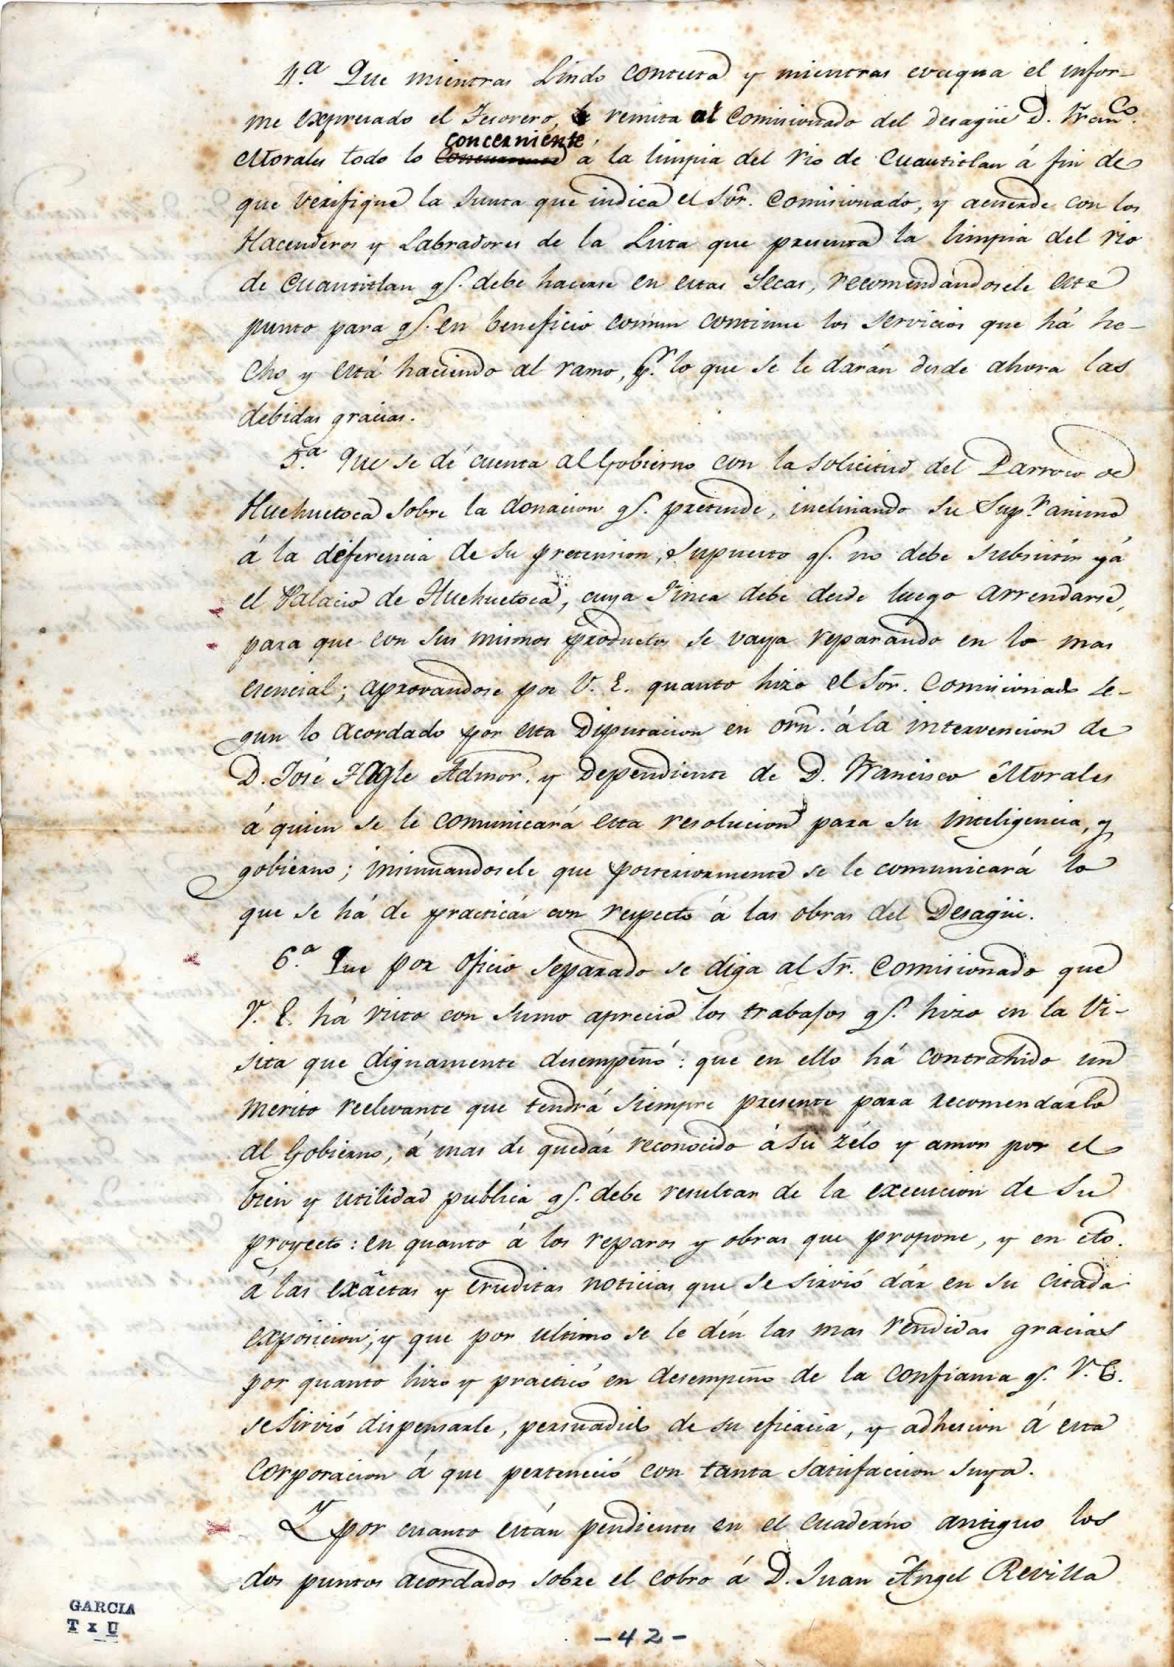 4.ª Que mientras Lindo contesta y mientras evaqua el infor-
me expresado el Tesorero, se remita al Comisionado del desagüe D. Fran.co
Morales todo lo concerniente á la limpia del rio de Cuautitlan á fin de
que verifique la Junta que indica el Sõr. Comisionado, y acuerde con los
Hacenderos y Labradores de la Lista que presenta la limpia del rio
de Cuautitlan q̃. debe hacerse en estas Secas, recomendandosele este
punto para q̃. en beneficio comun continue los servicios que há he-
cho y está haciendo al ramo, p.r lo que se le darán desde ahora las
debidas gracias.
5.ª Que se dé cuenta al Gobierno con la solicitud del Parroco de
Huehuetoca sobre la donacion q̃. pretende, inclinando su Sup.r animo
á la deferencia de su pretension, supuesto q̃. no debe subsistir yá
el Palacio de Huehuetoca, cuya Finca debe desde luego arrendarse,
para que con sus mismos productos se vaya reparando en lo mas
esencial; aprovandose por V. E. quanto hizo el Sõr. Comisionado se-
gun lo acordado por esta Diputacion en orñ. á la intervencion de
D. José Flagle Admor. y Dependiente de D. Francisco Morales
á quien se le comunicará esta resolucion para su inteligencia, y
gobierno; insinuandosele que posteriormente se le comunicará lo
que se há de practicár con respecto á las obras del Desagüe.
6.ª Que por oficio separado se diga al Sr. Comisionado que
V. E. há visto con sumo aprecio los trabajos q̃. hizo en la Vi-
sita que dignamente desempeñó: que en ello há contrahido un
merito reelevante que tendrá siempre presente para recomendarlo
al Gobierno, á mas de quedár reconocido á su zélo y amor por el
bien y utilidad publica q̃. debe resultar de la execucion de su
proyecto: en quanto á los reparos y obras que propone, y en cto.
á las exâctas y eruditas noticias que se sirvió dár en su citada
exposicion; y que por ultimo se le dén las mas rendidas gracias
por quanto hizo y practicó en desempeño de la confianza q̃. V. E.
se sirvió dispensarle, persuadido de su eficacia, y adhesion á esta
Corporacion á que perteneció con tanta satisfaccion suya.
Y por cuanto están pendientes en el cuaderno antiguo los
dos puntos acordados sobre el cobro á D. Juan Angel Revilla
GARCIA
T x U
-42-